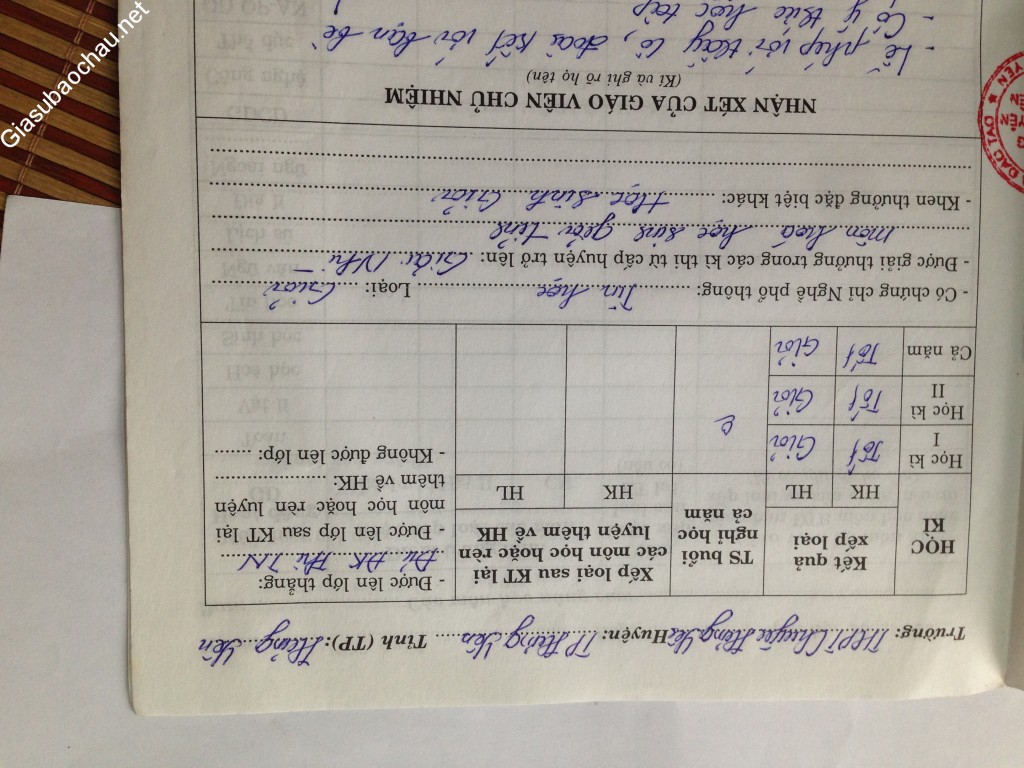 Trường: THPT Chuyên Hưng Yên Huyện: TP Hưng Yên Tỉnh (TP): Hưng Yên
HỌC KÌ
Kết quả xếp loại
TS buổi nghỉ học cả năm
Xếp loại sau KT lại các môn học hoặc rèn luyện thêm về HK
HK HL HK HL
- Được lên lớp thẳng:
Đủ ĐK thi TN
- Được lên lớp sau KT lại
môn học hoặc rèn luyện
thêm về HK:
- Không được lên lớp:
Học kì I Tốt Giỏi
Học kì II Tốt Giỏi
Cả năm Tốt Giỏi
- Có chứng chỉ Nghề phổ thông: Tin học Loại: Giỏi
- Được giải thưởng trong các kì thi từ cấp huyện trở lên: Giải Nhì
môn hoá học sinh giỏi tỉnh
- Khen thưởng đặc biệt khác: Học sinh Giỏi
NHẬN XÉT CỦA GIÁO VIÊN CHỦ NHIỆM
(Kí và ghi rõ họ tên)
- Lễ phép với thầy cô, đoàn kết với bạn bè
- Có ý thức học tập
ĐÀO TẠO
Giasubaochau.net